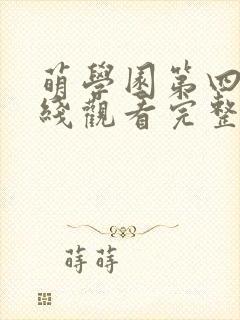 萌學園第四
綫觀看完整
蒔蒔